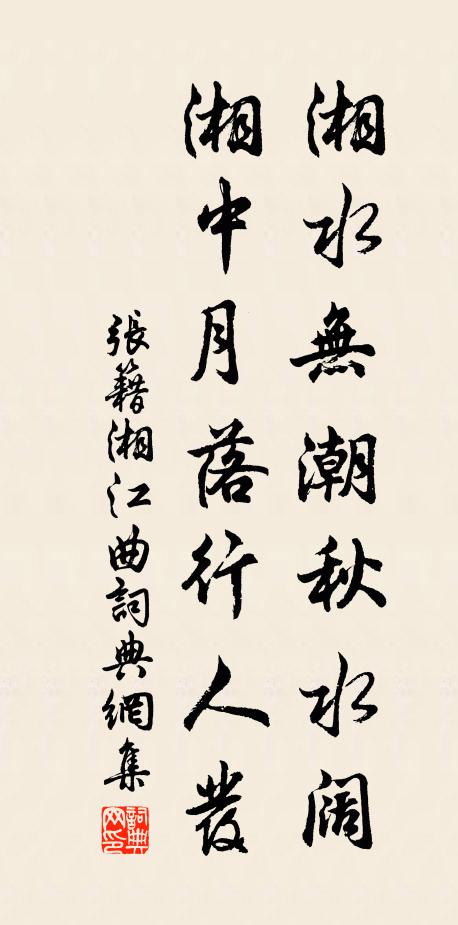 湘水無潮秋水阔
湘中月落行人發
張籍湘江曲詞典網集
詞典网印